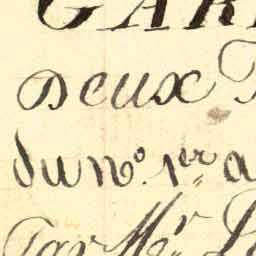 GAR
Deux
du nº. 1er a
Par Mr.